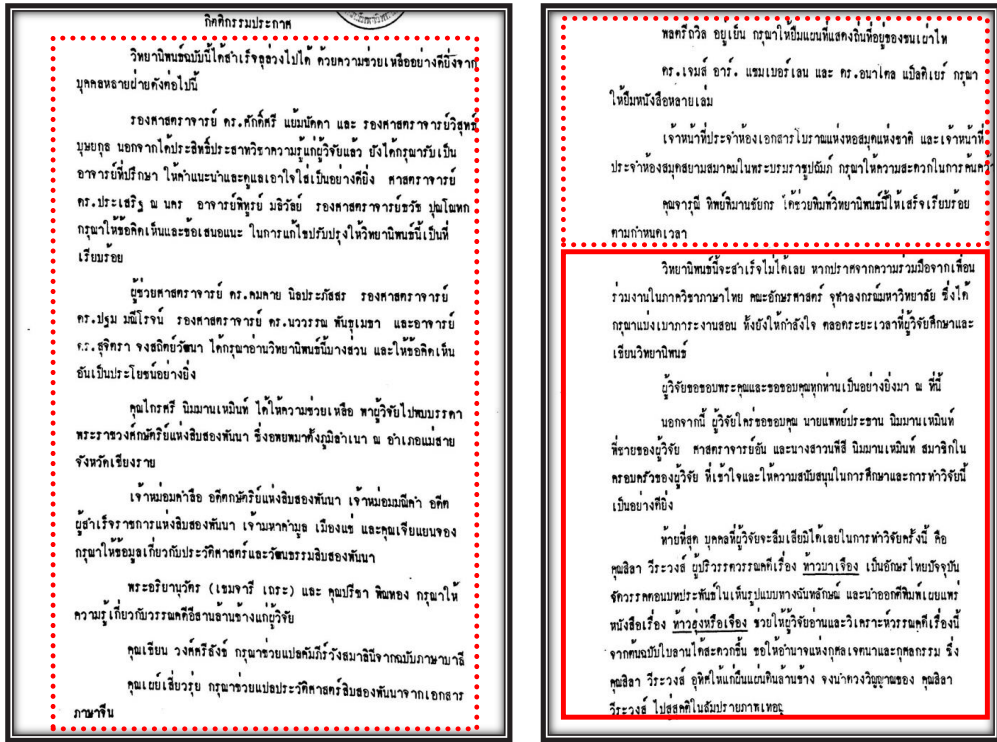 กิตติกรรมประกาศ
วิทยานิพนธ์ฉบับนี้ได้สำเร็จลุล่วงไปได้ ด้วยความช่วยเหลืออย่างดียิ่งจาก
บุคคลหลายฝ่ายดังต่อไปนี้
รองศาสตราจารย์ ดร.ศักดิ์ศรี แย้มนัดดา และ รองศาสตราจารย์วิสุทธิ์
บุษยกุล นอกจากได้ประสิทธิ์ประสาทวิชาความรู้แก่ผู้วิจัยแล้ว ยังได้กรุณารับเป็น
อาจารย์ที่ปรึกษา ให้คำแนะนำและดูแลเอาใจใส่เป็นอย่างดียิ่ง ศาสตราจารย์
ดร.ประเสริฐ ณ นคร อาจารย์พิทูรย์ มธิวัลย์ รองศาสตราจารย์ธวัช ปุณโณทก
กรุณาให้ข้อคิดเห็นและข้อเสนอแนะ ในการแก้ไขปรับปรุงให้วิทยานิพนธ์นี้เป็นที่
เรียบร้อย
ผู้ช่วยศาสตราจารย์ ดร.ดมคาย นิลประภัสสร รองศาสตราจารย์
ดร.ปฐม มณีโรจน์ รองศาสตราจารย์ ดร.นววรรณ พันธุเมธา และอาจารย์
ดร.สุจิตรา จงสถิตย์วัฒนา ได้กรุณาอ่านวิทยานิพนธ์นี้บางส่วน และให้ข้อคิดเห็น
อันเป็นประโยชน์อย่างยิ่ง
คุณไกรศรี นิมมานเหมินท์ ได้ให้ความช่วยเหลือ พาผู้วิจัยไปพบบรรดา
พระราชวงศ์กษัตริย์แห่งสิบสองพันนา ซึ่งอพยพมาตั้งภูมิลำเนา ณ อำเภอแม่สาย
จังหวัดเชียงราย
เจ้าหม่อมคำลือ อดีตกษัตริย์แห่งสิบสองพันนา เจ้าหม่อมมณีคำ อดีต
ผู้สำเร็จราชการแห่งสิบสองพันนา เจ้ามหาคำมูล เมืองแช่ และคุณเจียแยนจอง
กรุณาให้ข้อมูลเกี่ยวกับประวัติศาสตร์และวัฒนธรรมสิบสองพันนา
พระอริยานุวัตร (เขมจารี เถระ) และ คุณปรีชา พิณทอง กรุณาให้
ความรู้เกี่ยวกับวรรณคดีอีสานล้านช้างแก่ผู้วิจัย
คุณเขียน วงศ์ศรีสังข์ กรุณาช่วยแปลคัมภีร์วังสมาลินีจากฉบับภาษาบาลี
คุณเหย์เสี่ยวรุ่ย กรุณาช่วยแปลประวัติศาสตร์สิบสองพันนาจากเอกสาร
ภาษาจีน
พลตรีถวิล อยู่เย็น กรุณาให้ยืมแผนที่แสดงถิ่นที่อยู่ของชนเผ่าไท
ดร.เจมส์ อาร์. แชมเบอร์เลน และ ดร.อนาโตล แป็ลติเยร์ กรุณา
ให้ยืมหนังสือหลายเล่ม
เจ้าหน้าที่ประจำห้องเอกสารโบราณแห่งหอสมุดแห่งชาติ และเจ้าหน้าที่
ประจำห้องสมุดสยามสมาคมในพระบรมราชูปถัมภ์ กรุณาให้ความสะดวกในการค้นคว้า
คุณจารุณี ทิพย์พิมานชัยกร ได้ช่วยพิมพ์วิทยานิพนธ์นี้ให้เสร็จเรียบร้อย
ตามกำหนดเวลา
วิทยานิพนธ์นี้จะสำเร็จไม่ได้เลย หากปราศจากความร่วมมือจากเพื่อน
ร่วมงานในภาควิชาภาษาไทย คณะอักษรศาสตร์ จุฬาลงกรณ์มหาวิทยาลัย ซึ่งได้
กรุณาแบ่งเบาภาระงานสอน ทั้งยังให้กำลังใจ ตลอดระยะเวลาที่ผู้วิจัยศึกษาและ
เขียนวิทยานิพนธ์
ผู้วิจัยขอขอบพระคุณและขอขอบคุณทุกท่านเป็นอย่างยิ่งมา ณ ที่นี้
นอกจากนี้ ผู้วิจัยใคร่ขอขอบคุณ นายแพทย์ประธาน นิมมานเหมินท์
พี่ชายของผู้วิจัย ศาสตราจารย์อัน และนางสาวนพีสี นิมมานเหมินท์ สมาชิกใน
ครอบครัวของผู้วิจัย ที่เข้าใจและให้ความสนับสนุนในการศึกษาและการทำวิจัยนี้
เป็นอย่างดียิ่ง
ท้ายที่สุด บุคคลที่ผู้วิจัยจะลืมเสียมิได้เลยในการทำวิจัยครั้งนี้ คือ
คุณสิลา วีระวงส์ ผู้ปริวรรตวรรณคดีเรื่อง ท้าวบาเจือง เป็นอักษรไทยปัจจุบัน
จัดวรรคตอนบทประพันธ์ในเห็นรูปแบบทางฉันทลักษณ์ และนำออกตีพิมพ์เผยแพร่
หนังสือเรื่อง ท้าวฮุ่งหรือเจือง ช่วยให้ผู้วิจัยอ่านและวิเคราะห์วรรณคดีเรื่องนี้
จากต้นฉบับใบลานได้สะดวกขึ้น ขอให้อำนาจแห่งกุศลเจตนาและกุศลกรรม ซึ่ง
คุณสิลา วีระวงส์ อุทิศให้แก่ผืนแผ่นดินล้านช้าง จงนำดวงวิญญาณของ คุณสิลา
วีระวงส์ ไปสู่สุคติในสัมปรายภาพเทอญ